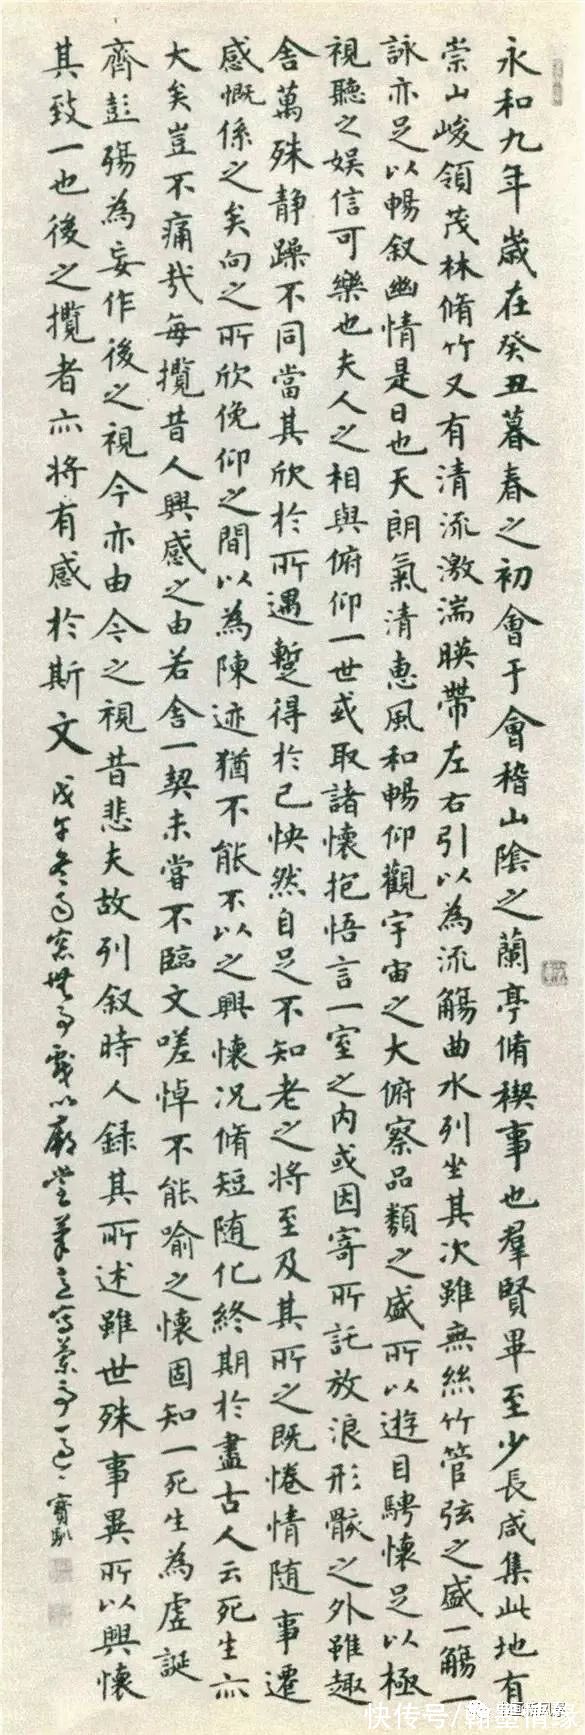 永和九年歲在癸丑暮春之初會于會稽山陰之蘭亭脩禊事也羣賢畢至少長咸集此地有
崇山峻領茂林脩竹又有清流激湍暎帶左右引以為流觴曲水列坐其次雖無絲竹管弦之盛一觴一
詠亦足以暢叙幽情是日也天朗氣清惠風和暢仰觀宇宙之大俯察品類之盛所以遊目騁懷足以極
視聽之娱信可樂也夫人之相與俯仰一世或取諸懷抱悟言一室之內或因寄所託放浪形骸之外雖趣
舎萬殊静躁不同當其欣於所遇蹔得於己怏然自足不知老之将至及其所之既惓情随事遷
感慨係之矣向之所欣俛仰之間以為陳迹猶不能不以之興懷况脩短随化終期於盡古人云死生亦
大矣豈不痛哉每攬昔人興感之由若合一契未嘗不臨文嗟悼不能喻之懷固知一死生為虚誕
齊彭殤為妄作後之視今亦由今之視昔悲夫故列叙時人録其所述雖世殊事異所以興懷
其致一也後之攬者亦将有感於斯文
戊午冬日窓無事戲以廟堂筆意寫蘭亭一過
快传号/